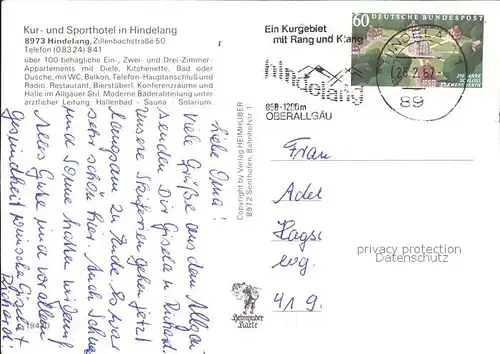 Kur- und Sporthotel in Hindelang
8973 Hindelang, Zillenbachstraße 50
Telefon (08324) 841
über 100 behagliche Ein-, Zwei- und Drei-Zimmer-
Appartements mit Diele, Kitchenette, Bad oder
Dusche, mit WC, Balkon, Telefon-Hauptanschluß und
Radio. Restaurant, Bierstüberl, Konferenzräume und
Halle im Allgäuer Stil. Moderne Bäderabteilung unter
ärztlicher Leitung. Hallenbad - Sauna - Solarium.
Liebe Oma!
Viele Grüße aus dem Allgäu
senden Dir Gisela u. Richard.
Unsere Skiferien gehen jetzt
langsam zu Ende. Es war
sehr schön hier. Auch Schnee
und Sonne hatten wir genug.
Alles Gute und vor allem
Gesundheit wünschen Gisela +
Richard!
Copyright by Verlag HEIMHUBER
8972 Sonthofen, Bahnhofstr.
Ein Kurgebiet
mit Rang und Klang
hindelang
850-1200m
OBERALLGÄU
60 DEUTSCHE BUNDESPOST
250 JAHRE
SCHLOSS
CLEMENSWERTH
HINDELANG
89
Frau
Adel
Hags
ev.
419
privacy protection
Datenschutz
Heimhuber
Karte